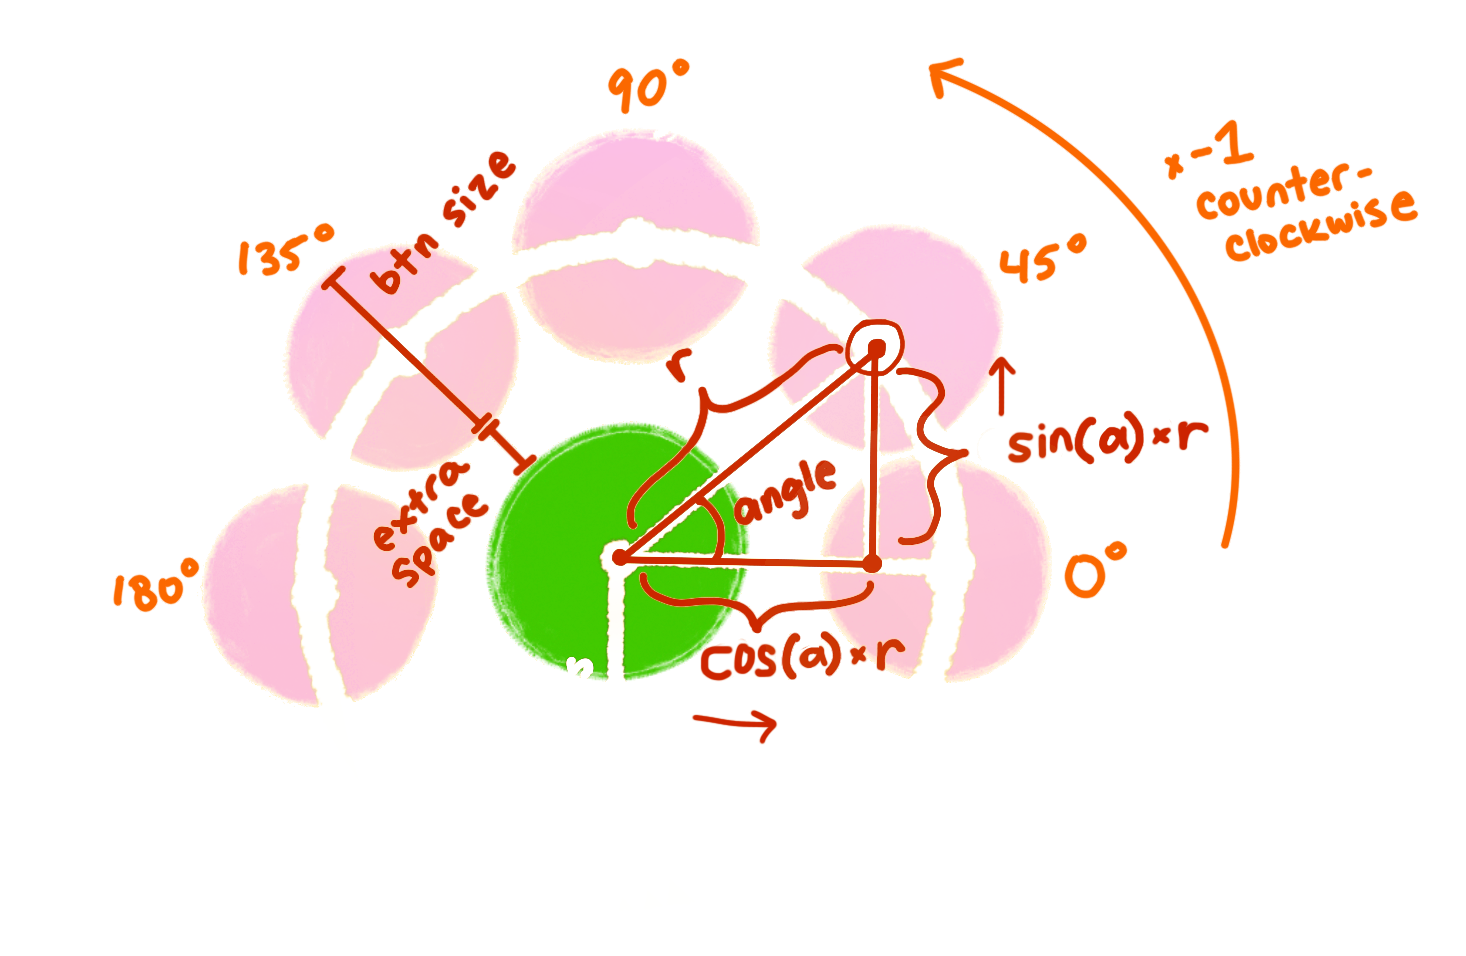 90°
× -1
counter-
clockwise
135°
btn size
45°
r
sin(a) × r
angle
extra
space
180°
0°
cos(a) × r